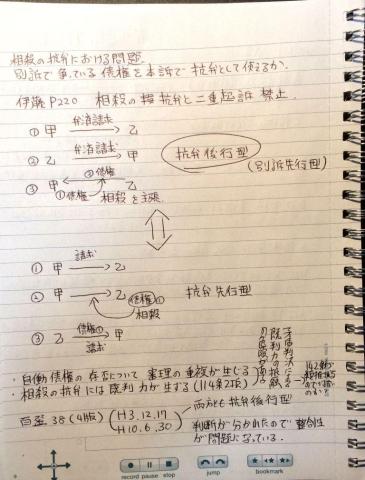 相殺の抗弁における問題.
別訴で争っている債権を本訴で抗弁として使えるか.
伊藤P220 相殺の抗弁と二重起訴禁止
① 甲 弁済請求 → 乙
② 乙 弁済請求 → 甲
抗弁後行型
(別訴先行型)
③ 甲 ②債権 乙
①債権 相殺を主張
① 甲 請求 → 乙
② 甲 → 乙
債権①
相殺
抗弁先行型
③ 乙 債権① → 甲
請求
・自働債権の存否について 審理の重複が生じる
・相殺の抗弁には既判力が生ずる(114条2項)
矛盾判決による
既判力の
142条が
百選 38(4版) (H3.12.17
H10.6.30) 両方とも抗弁後行型
判断が分かれたので整合性
が問題になっている.
record pause stop
jump
bookmark